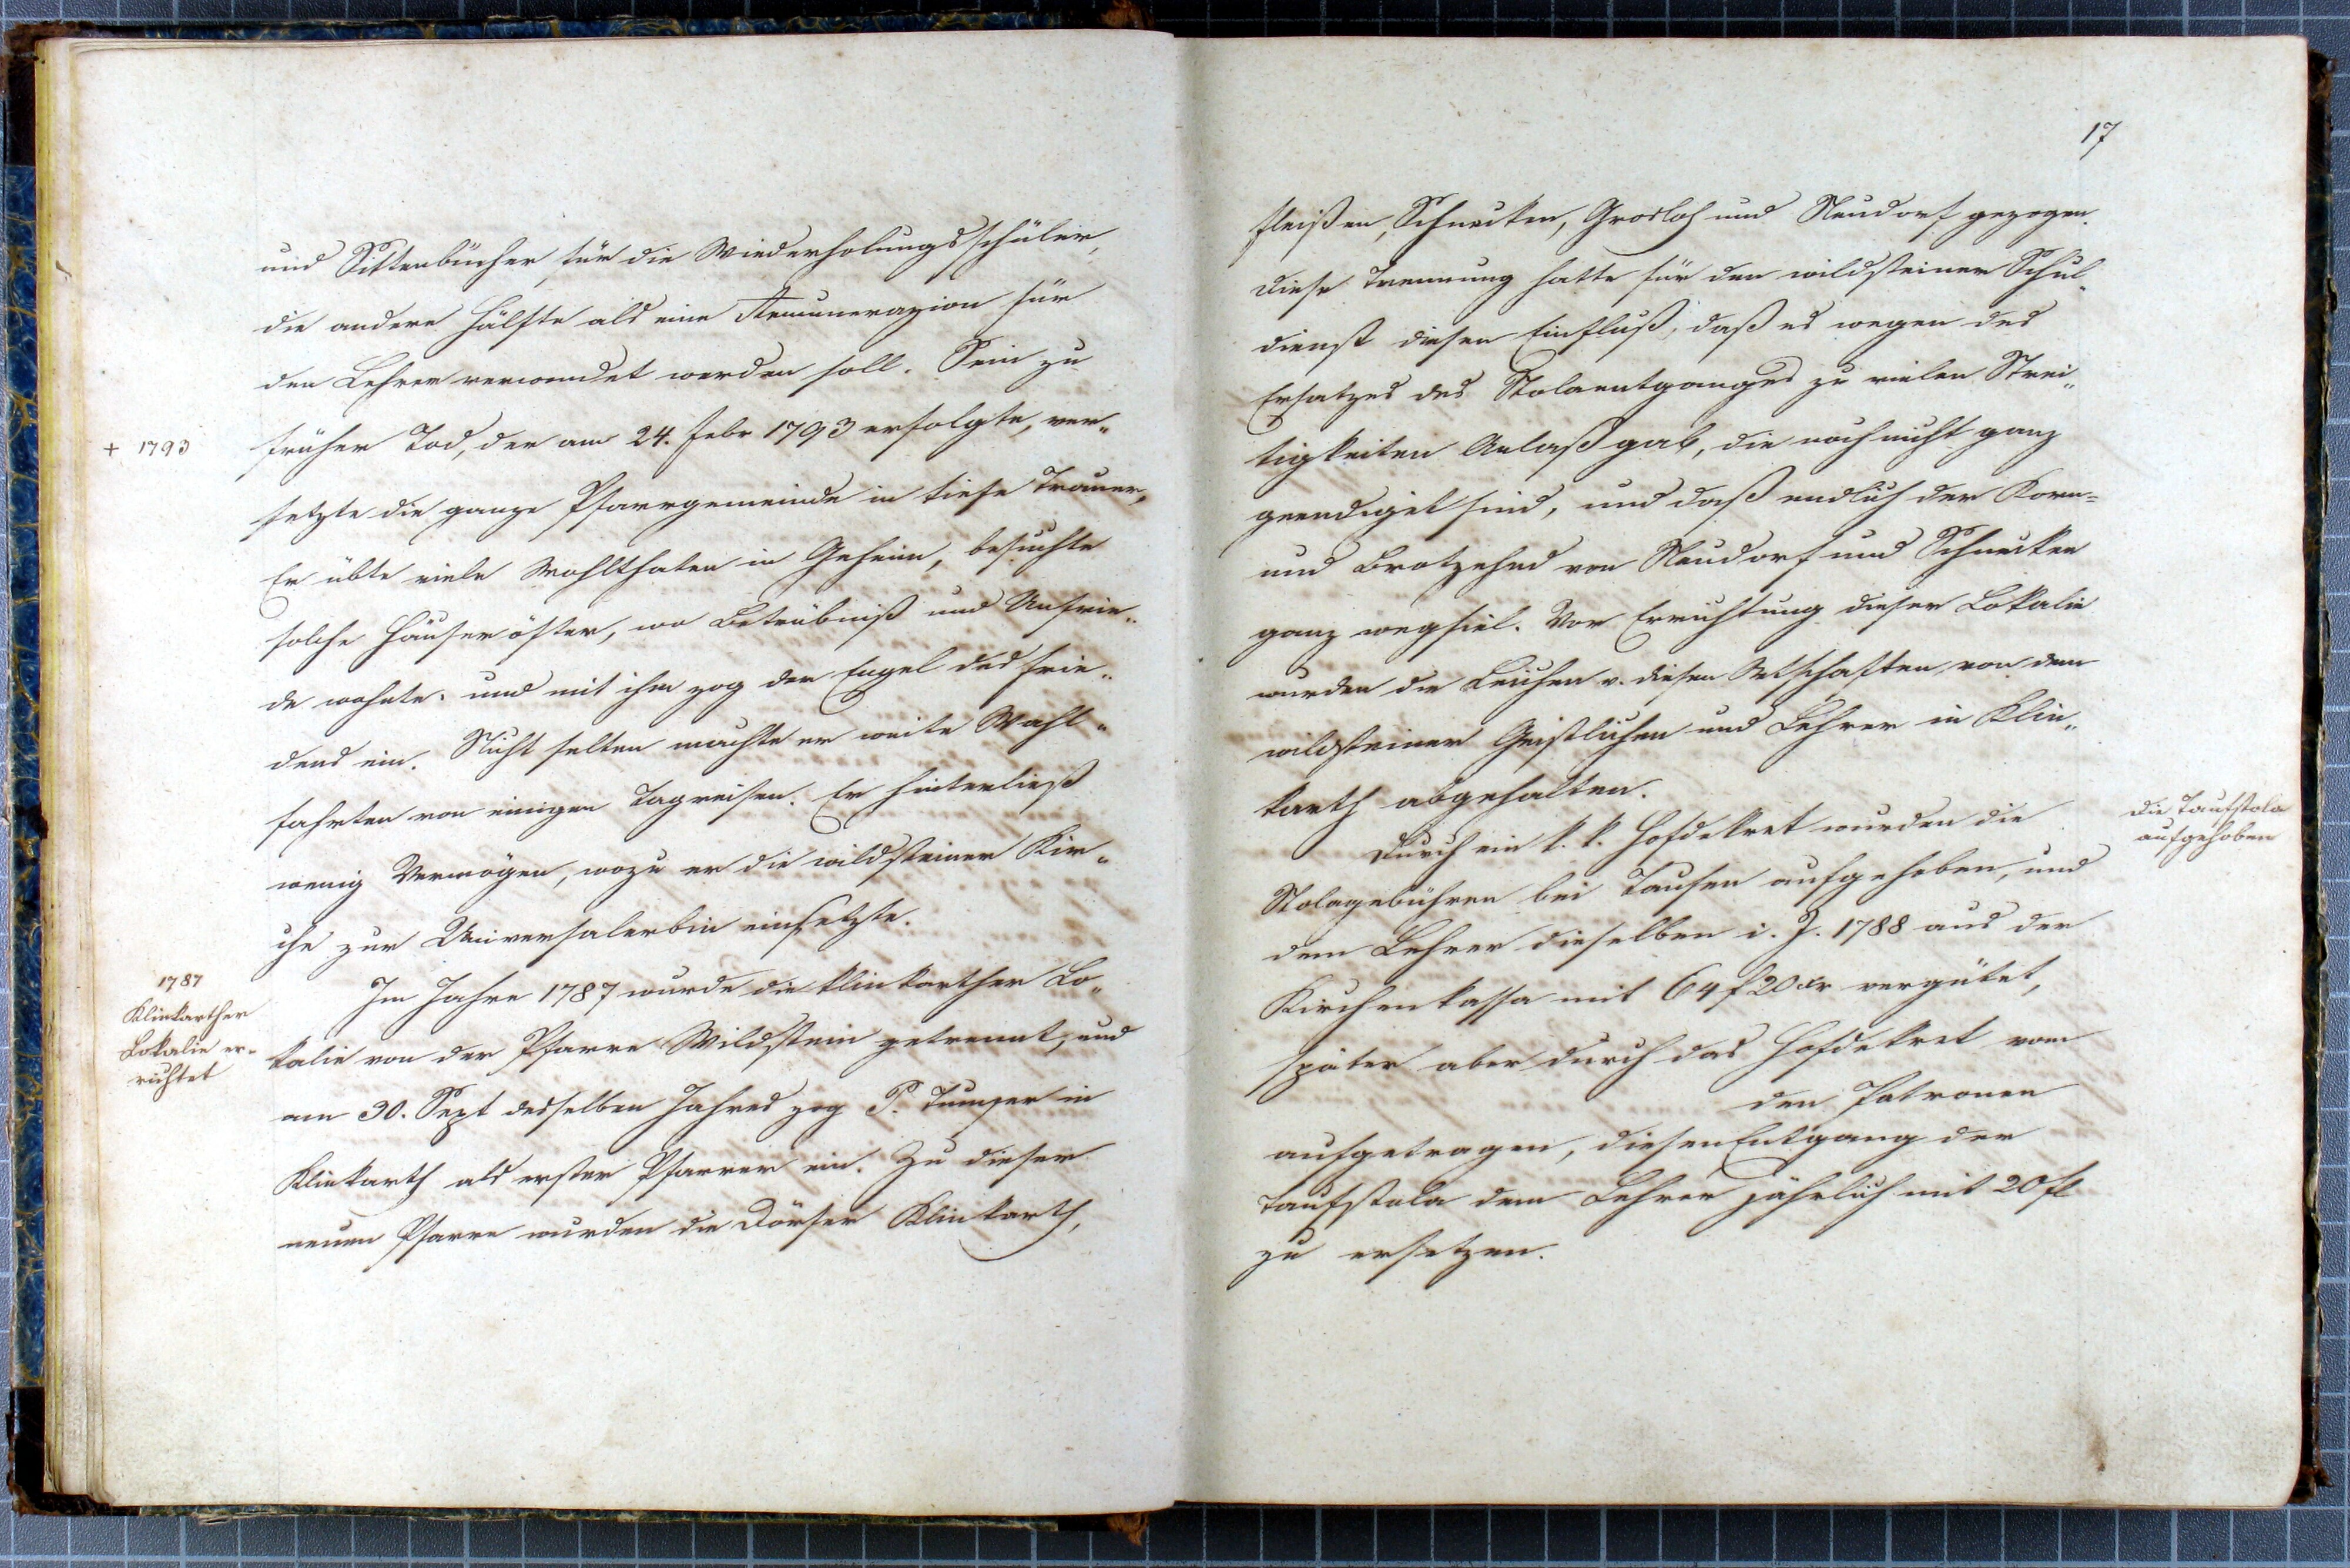 und Sittenbücher für die Wiederholungsschüler,
die andere Hälfte als eine Remunerazion für
den Lehrer verwendet werden soll. Sein zu
+ 1793
früher Tod, der am 24. Febr 1793 erfolgte, ver„
setzte die ganze Pfarrgemeinde in tiefe Trauer,
Er übte viele Wohlthaten in Geheim, besuchte
solche Häuser öfter, wo Betrübniß und Unfrie„
de wohnte. und mit ihm zog der Engel des Frie„
dens ein. Nicht selten machte er weite Wahl„
fahrten von einigen Tagreisen. Er hinterließ
wenig Vermögen, wozu er die wildsteiner Kir„
che zur Universalerbin einsetzte.
1787
Klinkarther
Lokalie er„
richtet
Im Jahre 1787 wurde die klinkarther Lo„
kalie von der Pfarre Wildstein getrennt, und
am 30. Sept desselben Jahres zog P. Tumser in
Klinkarth als erster Pfarrer ein. Zu dieser
neuen Pfarre wurden die Dörfer Klinkarth,
17
Fleißen, Schnecken, Grosloh und Neudorf gezogen.
Diese Trennung hatte für den wildsteiner Schul„
dienst diesen Einfluß, daß es wegen des
Ersatzes des Stolaentganges zu vielen Strei„
tigkeiten Anlaß gab, die noch nicht ganz
geendiget sind, und daß endlich der Korn=
und Brotzehnd von Neudorf und Schnecken
ganz wegfiel. Vor Errichtung dieser Lokalie
wurden die Leichen v. diesen Ortschaften, von dem
wildsteiner Geistlichen und Lehrer in Klin„
karth abgehalten.
Die Taufstola
aufgehoben
Durch ein k. k. Hofdekret wurden die
Stolagebühren bei Taufen aufgehoben, und
dem Lehrer dieselben i. J. 1788 aus der
Kirchenkassa mit 64 f 20 xr vergütet,
später aber durch das Hofdekret vom
den Patronen
aufgetragen, diesen Entgang der
Taufstola dem Lehrer jährlich mit 20 fl
zu ersetzen.